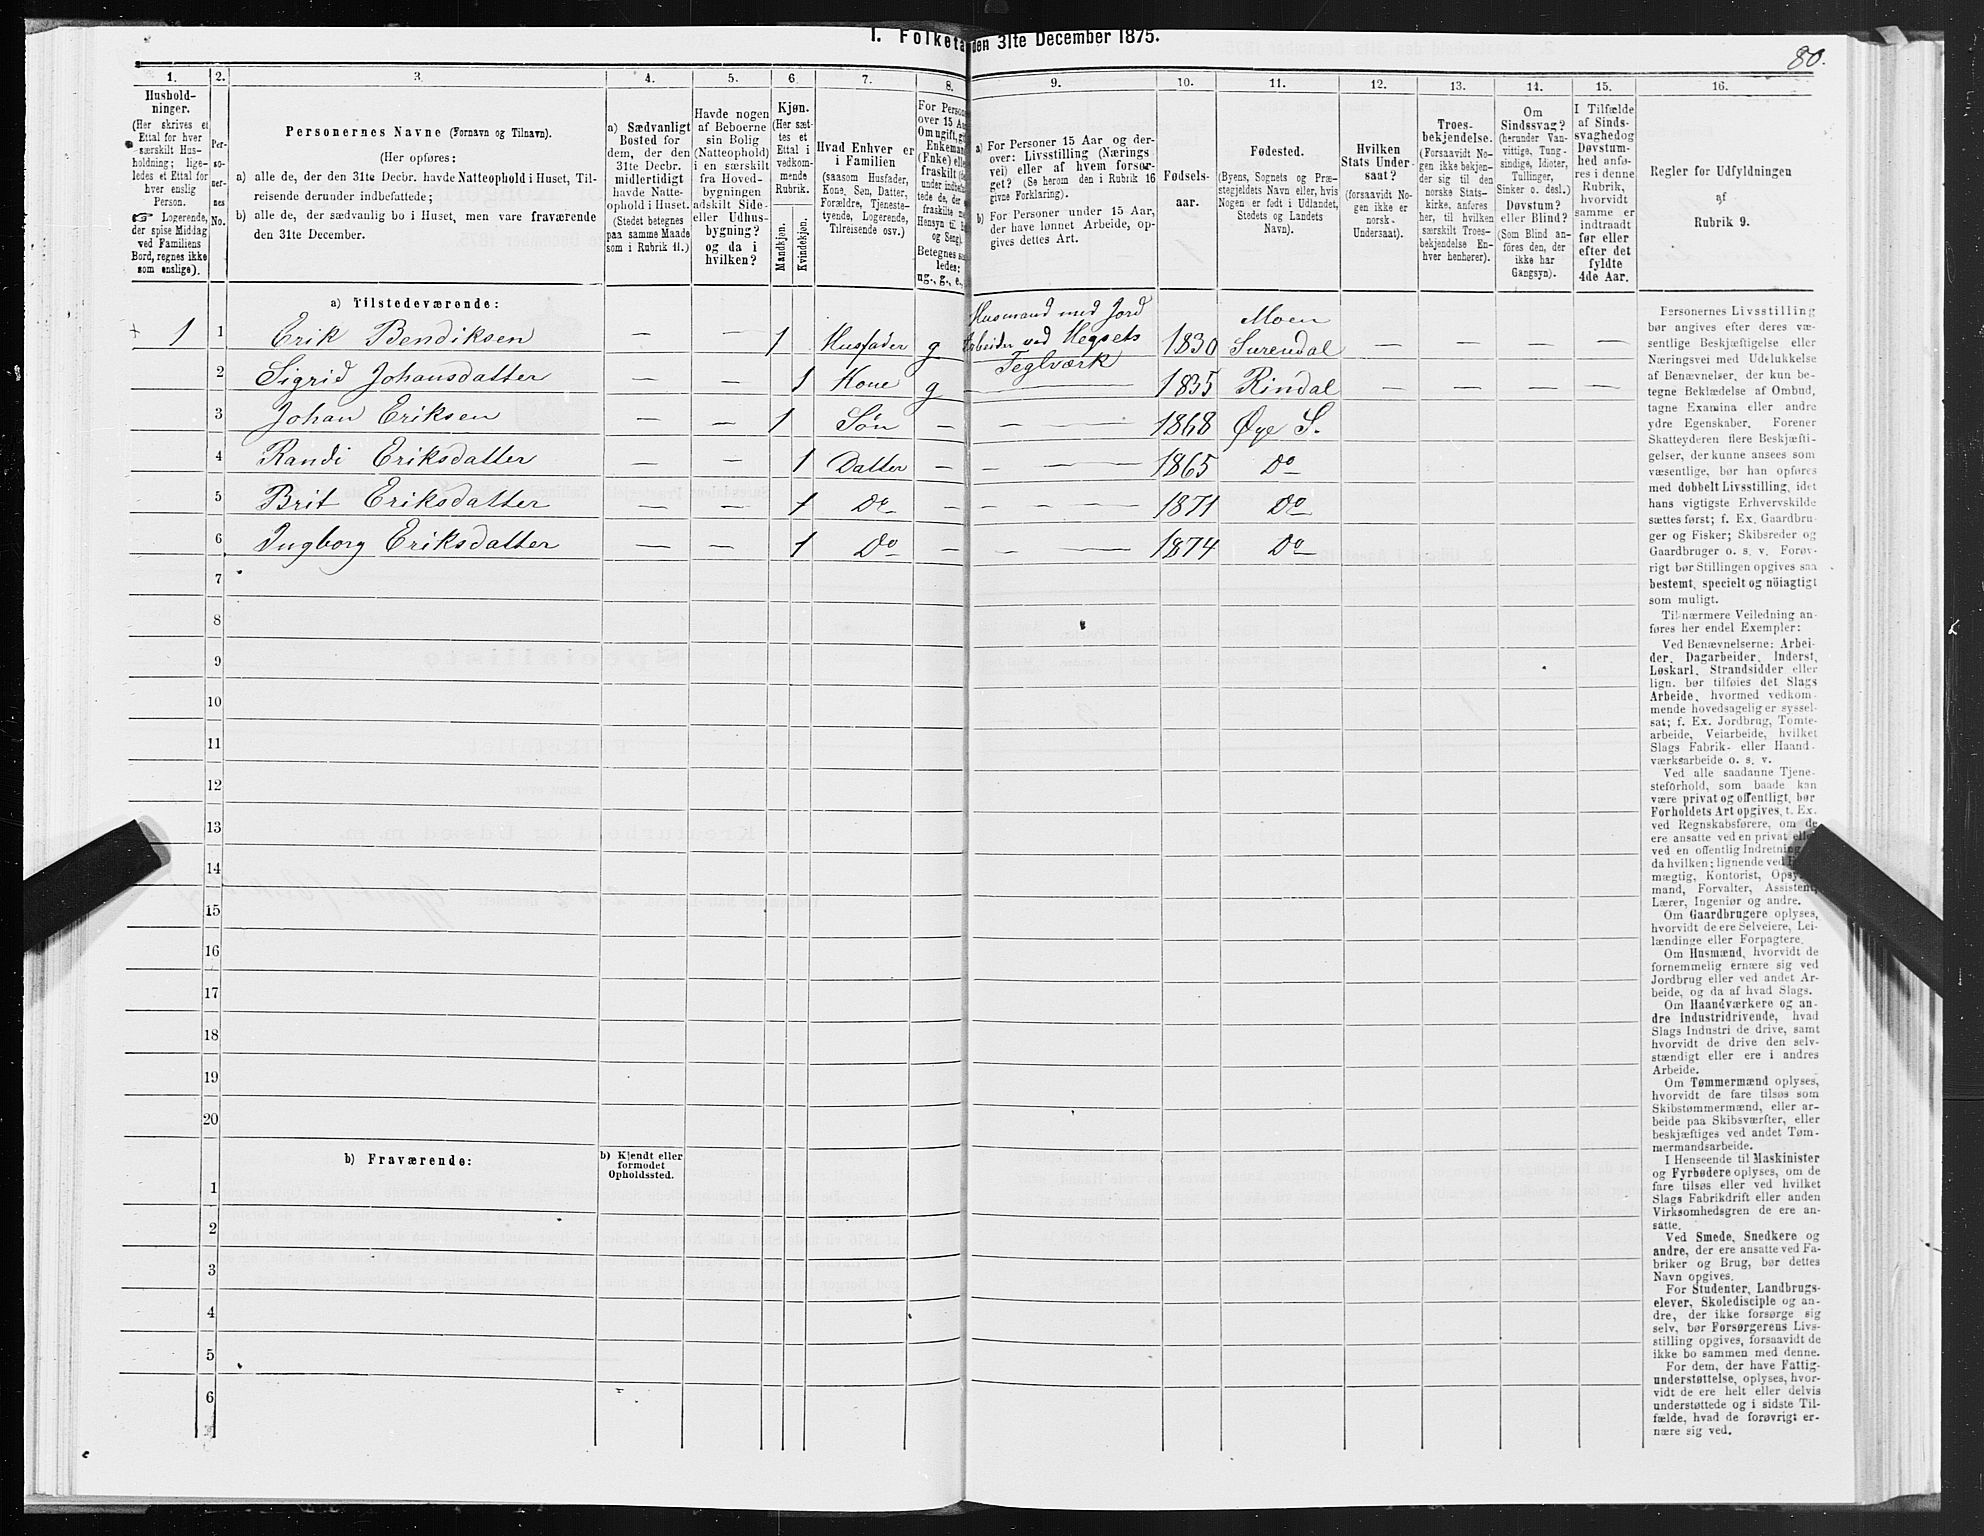 1. Folketa den 31te December 1875.
80.
1. 2. 3. 4. 5. 6. 7. 8. 9. 10. 11. 12. 13. 14. 15. 16.
Hushold-
ninger.
(Her skrives et
Ettal for hver
særskilt Hus-
holdning; lige-
ledes et Ettal for
hver enslig
Person.
☞ Logerende,
der spise Middag
ved Familiens
Bord, regnes ikke
som enslige).
Per-
so-
ner-
nes
No.
Personernes Navne (Fornavn og Tilnavn).
(Her opføres:
a) alle de, der den 31te Decbr. havde Natteophold i Huset, Til-
reisende derunder indbefattede;
b) alle de, der sædvanlig bo i Huset, men vare fraværende
den 31te December.
a) Sædvanligt
Bosted for
dem, der den
31te Decbr.
midlertidigt
havde Natte-
ophold i Huset.
(Stedet betegnes
paa samme Maade
som i Rubrik 11.)
Havde nogen
af Beboerne
sin Bolig
(Natteophold)
i en særskilt
fra Hoved-
bygningen
adskilt Side-
eller Udhus-
bygning?
og da i
hvilken?
Kjøn.
(Her sæt-
tes et
Ettal i
vedkom-
mende
Rubrik.
Mandkjøn.
Kvindekjøn.
Hvad Enhver er
i Familien
(saasom Husfader,
Kone, Søn, Datter,
Forældre, Tjeneste-
tyende, Logerende,
Tilreisende osv.)
For Person
over 15 Aa
Om ugift, g
Enkeman
(Fnke) elle
fraskilt (de
under indbe
tede de, der
fraskilte m
Hensyn til B
og Seng).
Betegnes s
ledes:
ug-, g-, e-,
a) For Personer 15 Aar og der-
over: Livsstilling (Nærings
vei) eller af hvem forsør-
get? (Se herom den i Rubrik 16
givne Forklaring).
b) For Personer under 15 Aar,
der have lønnet Arbeide, op-
gives dettes Art.
Fødsels-
aar.
Fødested.
(Byens, Sognets og Præ-
stegjeldets Navn eller, hvis
Nogen er født i Udlandet,
Stedets og Landets
Navn).
Hvilken
Stats Under-
saat?
(forsaavidt No-
gen ikke er
norsk-
Undersaat).
Troes-
bekjendelse.
(Forsaavidt No-
gen ikke bekjen-
der sig til den
norske Stats-
kirke, anføres
her, til hvilken
særskilt Troes-
bekjendelse En-
hver henhører).
Om
Sindssvag?
(herunder Van-
vittige, Tung-
sindige, Idioter,
Tullinger,
Sinker o. desl.)
Døvstum?
eller Blind?
(Som Blind an-
føres den, der
ikke har
Gangsyn).
I Tilfælde
af Sinds-
svaghedog
Døvstum-
hed anfø-
res i denne
Rubrik,
hvorvidt
samme er
indtraadt
før eller
efter det
fyldte
4de Aar.
Regler for Udfyldningen
af
Rubrik 9.
a) Tilstedeværende:
1 1 Erik Bendiksen — — 1 Husfader g Husmand med Jord
Arbeider ved Hegsets
Teglværk 1830 Moen
Surendal — — — —
2 Sigrid Johansdatter — — 1 Kone g — 1835 Rindal — — — —
3 Johan Eriksen — — 1 Søn — — — 1868 Øye S.
4 Randi Eriksdatter — — 1 Datter — — — 1865 Do
5 Brit Eriksdatter — — 1 Do — — — 1871 Do
6 Ingborg Eriksdatter — — 1 Do — — — 1874 Do
7
8
9
10
11
12
13
14
15
16
17
18
19
20
b) Fraværende:
b) Kjendt eller
formodet
Opholdssted.
1
2
3
4
5
6
Personernes Livsstilling
bør angives efter deres væ-
sentlige Beskjæftigelse eller
Næringsvei med Udelukkelse
af Benævnelser, der kun be-
tegne Beklædelse af Ombud,
tagne Examina eller andre
ydre Egenskaber. Forener
Skatteyderen flere Beskjæfti-
gelser, der kunne ansees som
væsentlige, bør han opføres
med dobbelt Livsstilling, idet
hans vigtigste Erhvervskilde
sættes først; f. Ex. Gaardbru-
ger og Fisker; Skibsreder og
Gaardbruger o. s. v. Forøv-
rigt bør Stillingen opgives saa
bestemt, specielt og nöiagtigt
som muligt.
Til nærmere Veiledning an-
føres her endel Exempler:
Ved Benævnelserne: Arbei-
der, Dagarbeider, Inderst,
Løskarl, Strandsidder eller
lign. bør tilføies det Slags
Arbeide, hvormed vedkom-
mende hovedsagelig er syssel-
sat; f. Ex. Jordbrug, Tomte-
arbeide, Veiarbeide, hvilket
Slags Fabrik- eller Haand-
værksarbeide o. s. v.
Ved alle saadanne Tjene-
steforhold, som baade kan
være privat og offentligt, bør
Forholdets Art opgives, t. Ex.
ved Regnskabsførere, om de
ere ansatte ved en privat eller
ved en offentlig Indretning
da hvilken; lignende ved
mægtig, Kontorist, Opsy
mand, Forvalter, Assistent,
Lærer, Ingeniør og andre.
Om Gaardbrugere oplyses,
hvorvidt de ere Selveiere, Lei-
lændinge eller Forpagtere.
Om Husmænd, hvorvidt de
fornemmelig ernære sig ved
Jordbrug eller ved andet Ar-
beide, og da af hvad Slags.
Om Haandværkere og an-
dre Industridrivende, hvad
Slags Industri de drive, samt
hvorvidt de drive den selv-
stændigt eller ere i andres
Arbeide.
Om Tømmermænd oplyses,
hvorvidt de fare tilsøs som
Skibstømmermænd, eller ar-
beide paa Skibsværfter, eller
beskjæftiges ved andet Tøm-
mermandsarbeide.
I Henseende til Maskinister
og Fyrbødere oplyses, om de
fare tilsøs eller ved hvilket
Slags Fabrikdrift eller anden
Virksomhedsgren de ere an-
satte.
Ved Smede, Snedkere og
andre, der ere ansatte ved Fa-
briker og Brug, bør dettes
Navn opgives.
For Studenter, Landbrugs-
elever, Skoledisciple og an-
dre, der ikke forsørge sig
selv, bør Forsørgerens Livs-
stilling opgives, forsaavidt de
ikke bo sammen med denne.
For dem, der have Fattig-
understøttelse, oplyses, hvor-
vidt de ere helt eller delvis
understøttede og i sidste Til-
fælde, hvad de forøvrigt er-
nære sig ved.